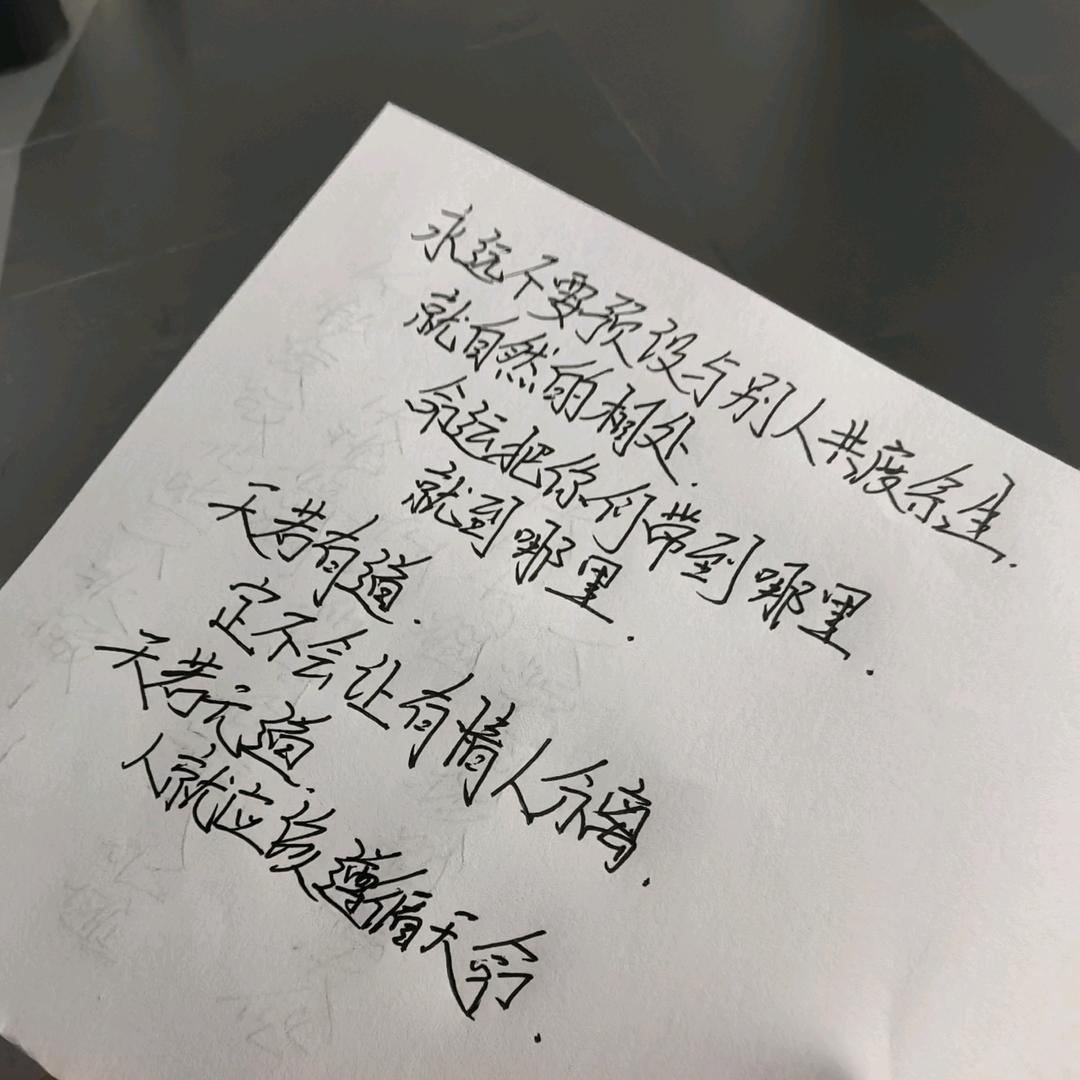 永远不要预设与别人共度余生.
就自然的相处.
命运把你们带到哪里.
就到哪里.
天若有道.
定不会让有情人分离.
天若无道.
人就应该遵循天命.